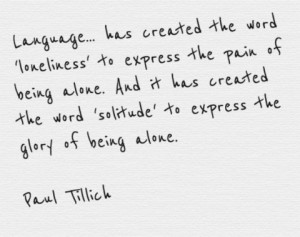 Language... has created the word
'loneliness' to express the pain of
being alone. And it has created
the word 'solitude' to express the
glory of being alone.
Paul Tillich